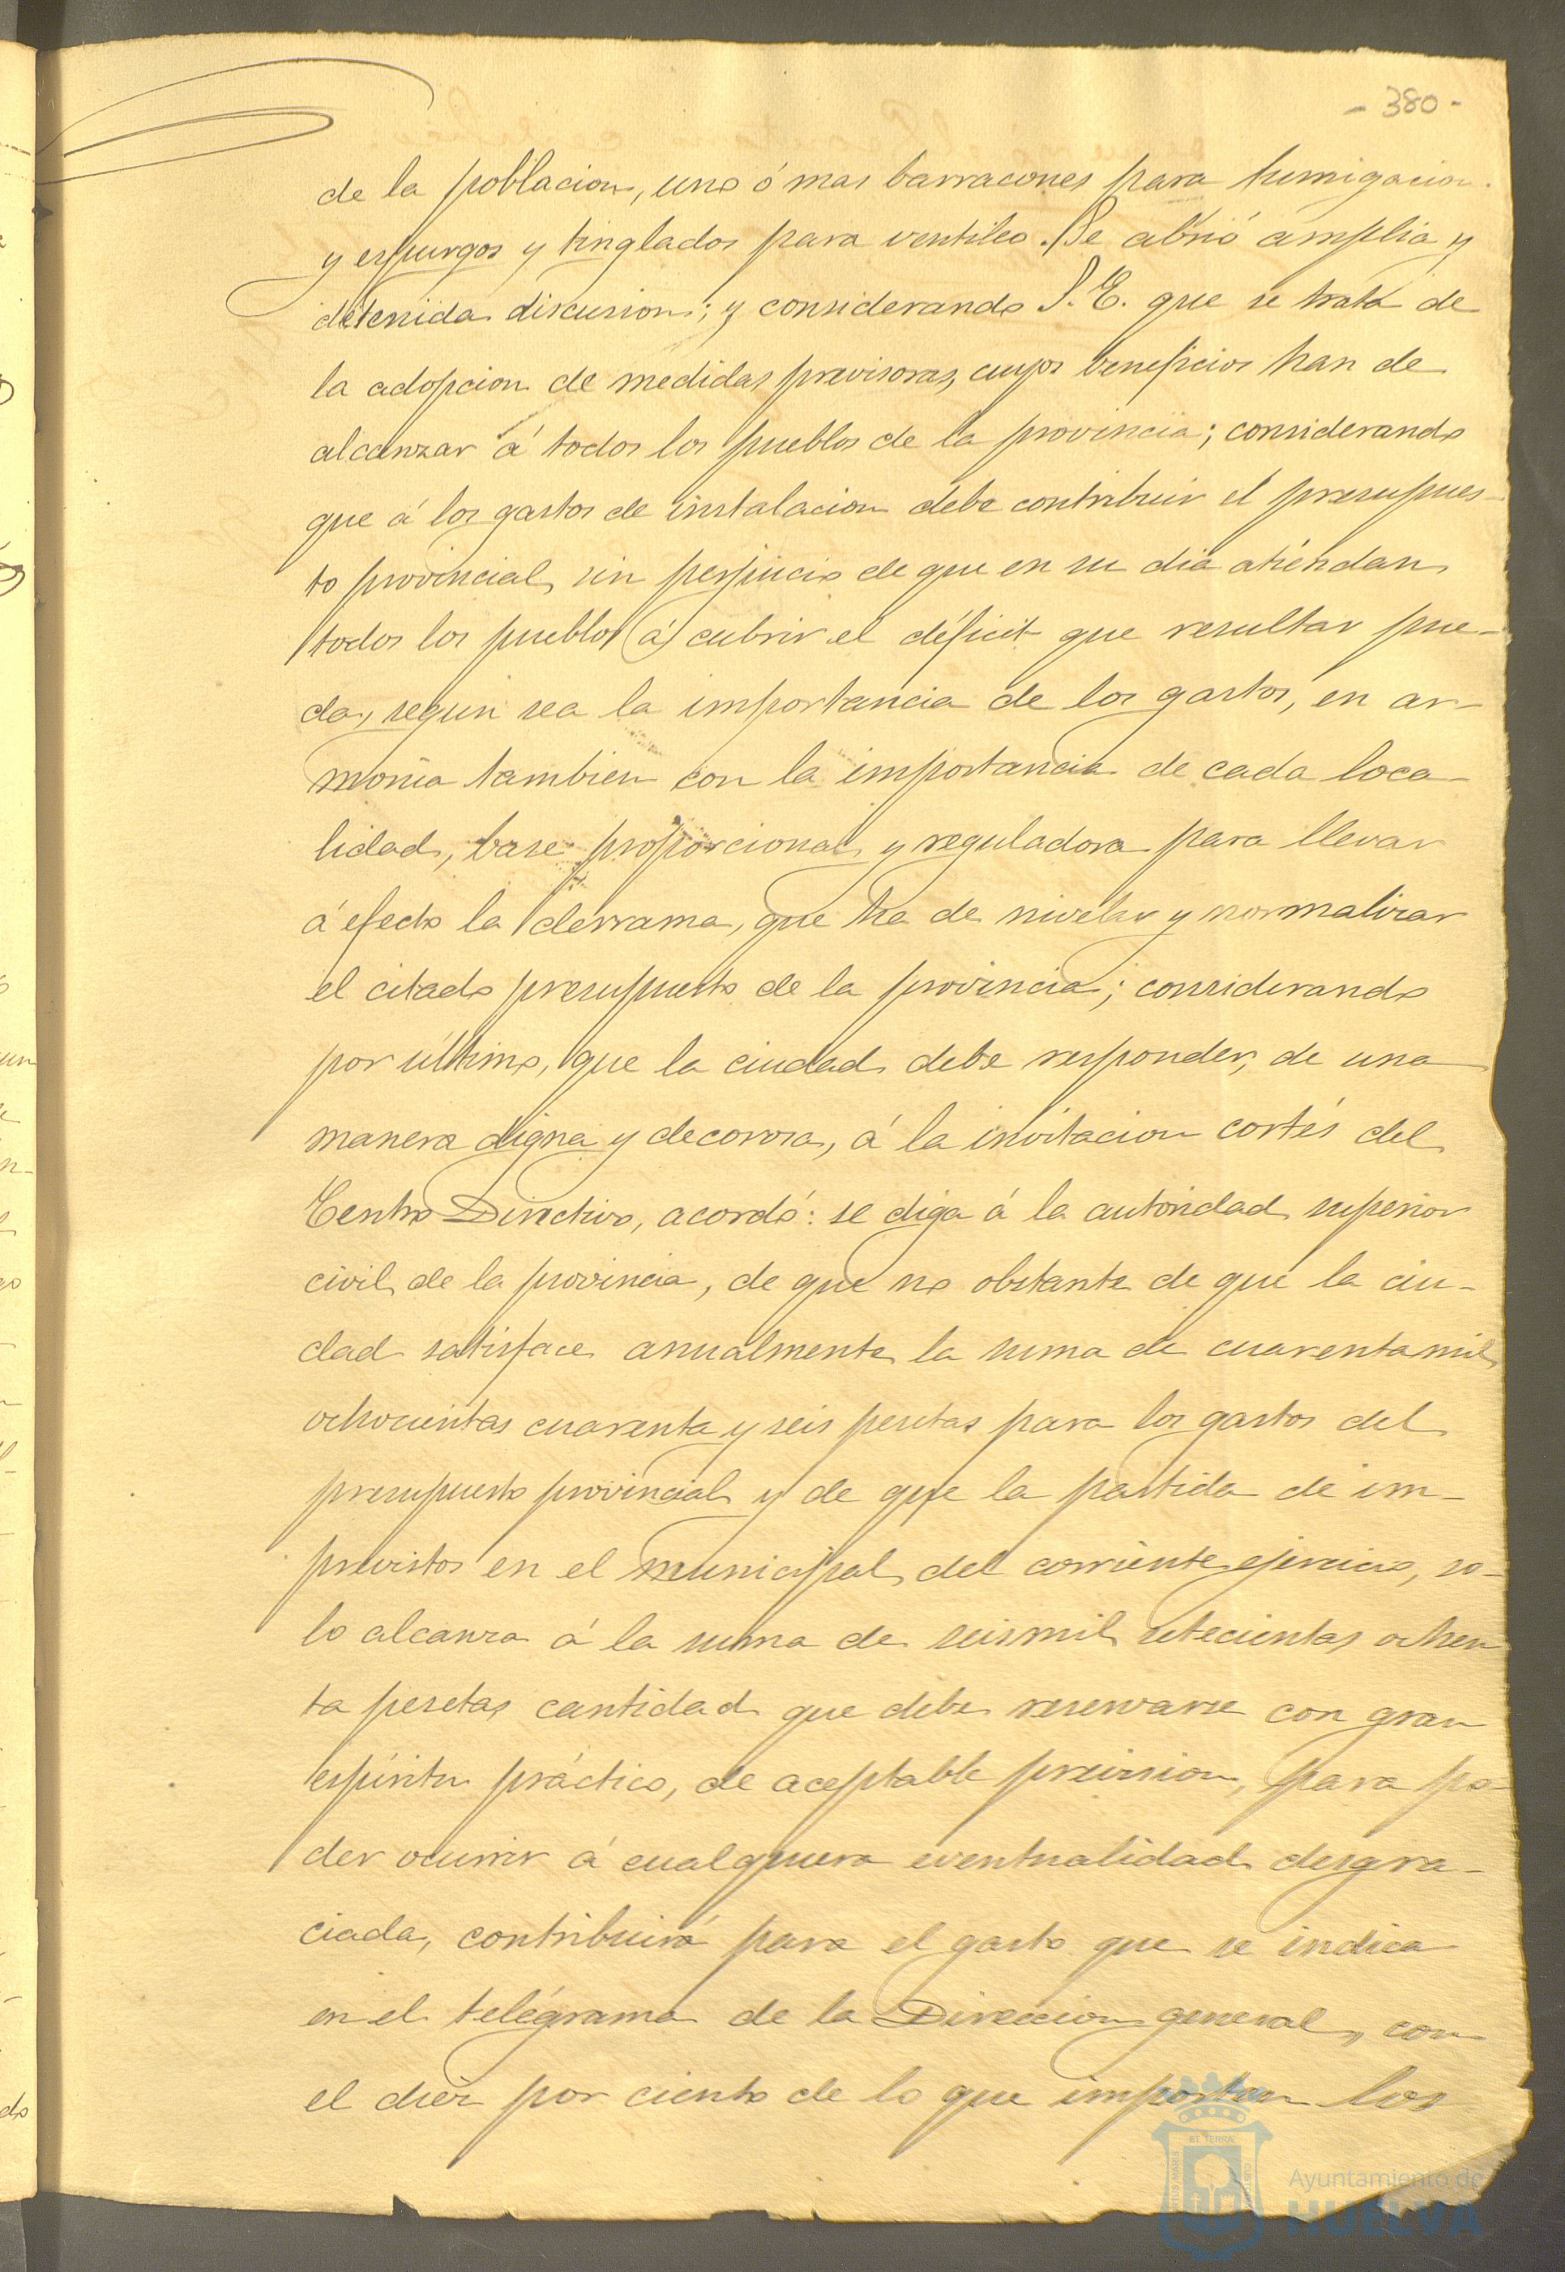 - 380 -
de la poblacion, uno ó mas barracones para fumigacion
y espurgos y tinglados para ventileo. Se abrió amplia y
detenida discusion; y considerando S. E. que se trata de
la adopcion de medidas previsoras, cuyos beneficios han de
alcanzar á todos los pueblos de la provincia; considerando
que á los gastos de instalacion debe contribuir el presupues-
to provincial, sin perjuicio de que en su dia atiendan
todos los pueblos á cubrir el déficit que resultar pue-
da, segun sea la importancia de los gastos, en ar-
monia tambien con la importancia de cada loca-
lidad, base proporcional y reguladora para llevar
á efecto la derrama, que ha de nivelar y normalizar
el citado presupuesto de la provincia; considerando
por último, que la ciudad debe responder, de una
manera digna y decorosa, á la invitacion cortés del
Centro Directivo, acordó: se diga á la autoridad superior
civil de la provincia, de que no obstante de que la ciu-
dad satisface anualmente la suma de cuarenta mil
ochocientas cuarenta y seis pesetas para los gastos del
presupuesto provincial y de que la partida de im-
previstos en el municipal del corriente ejercicio, so-
lo alcanza á la suma de seismil setecientas ochen
ta pesetas cantidad que debe reservarse con gran
espíritu práctico, de aceptable prevision, para po-
der ocurrir á cualquiera eventualidad desgra-
ciada, contribuirá para el gasto que se indica
en el telégrama de la Direccion general, con
el diez por ciento de lo que importan los
ET TERRAE
Ayuntamiento de
HUELVA